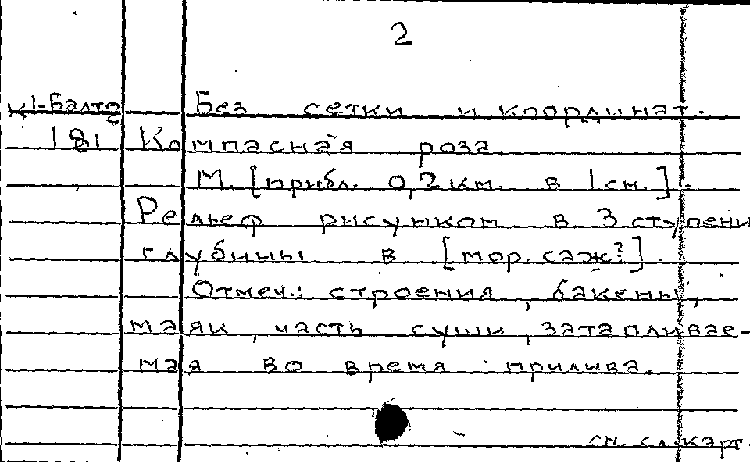 2
К1-Балто Без сетки и координат.
181 Компасная роза
М. [прибл. 0,2 км. в 1 см.].
Рельеф рисунком в 3 ступени
глубины в [мор. саж?].
Отмеч.: строения, бакены,
маяк, часть суши, затапливае-
мая во время прилива.
см. сл. карт.